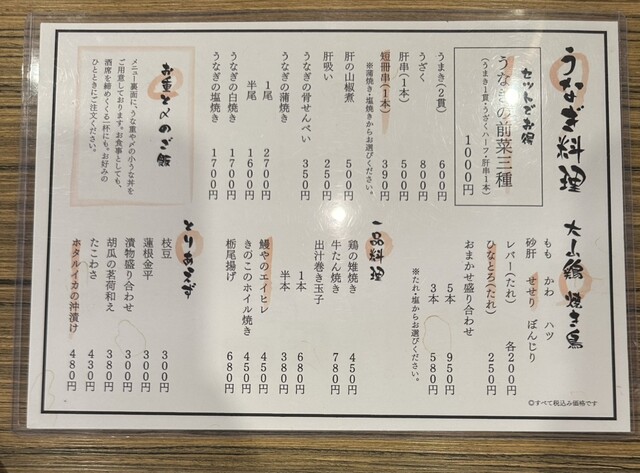 うなぎ料理
セットでお得
うなぎの前菜三種
(うまき1貫・うざくハーフ・肝串1本)
1000円
うまき(2貫) 600円
うざく 800円
肝串(1本) 500円
短冊串(1本) 390円
※蒲焼き・塩焼きからお選びください。
肝の山椒煮 500円
肝吸い 250円
うなぎの骨せんべい 350円
うなぎの蒲焼き
1尾 2700円
半尾 1600円
うなぎの白焼き 1700円
うなぎの塩焼き 1700円
お重と〆のご飯
メニュー裏面に、うな重や〆の小うな丼を
ご用意しております。お食事としても、
酒席を締めくくる一杯にも。お好みの
ひとときにご注文ください。
大山鶏 焼き鳥
もも かわ ハツ
砂肝 せせり ぼんじり
レバー(たれ) 各200円
ひなとろ(たれ) 250円
おまかせ盛り合わせ
5本 950円
3本 580円
※たれ・塩からお選びください。
一品料理
鶏の雉焼き 450円
牛たん焼き 780円
出汁巻き玉子
1本 680円
半本 380円
鰻やのエイヒレ 450円
きのこのホイル焼き 450円
栃尾揚げ 680円
とりあえず
枝豆 300円
蓮根金平 300円
漬物盛り合わせ 300円
胡瓜の茗荷和え 380円
たこわさ 430円
ホタルイカの沖漬け 480円
◎すべて税込み価格です